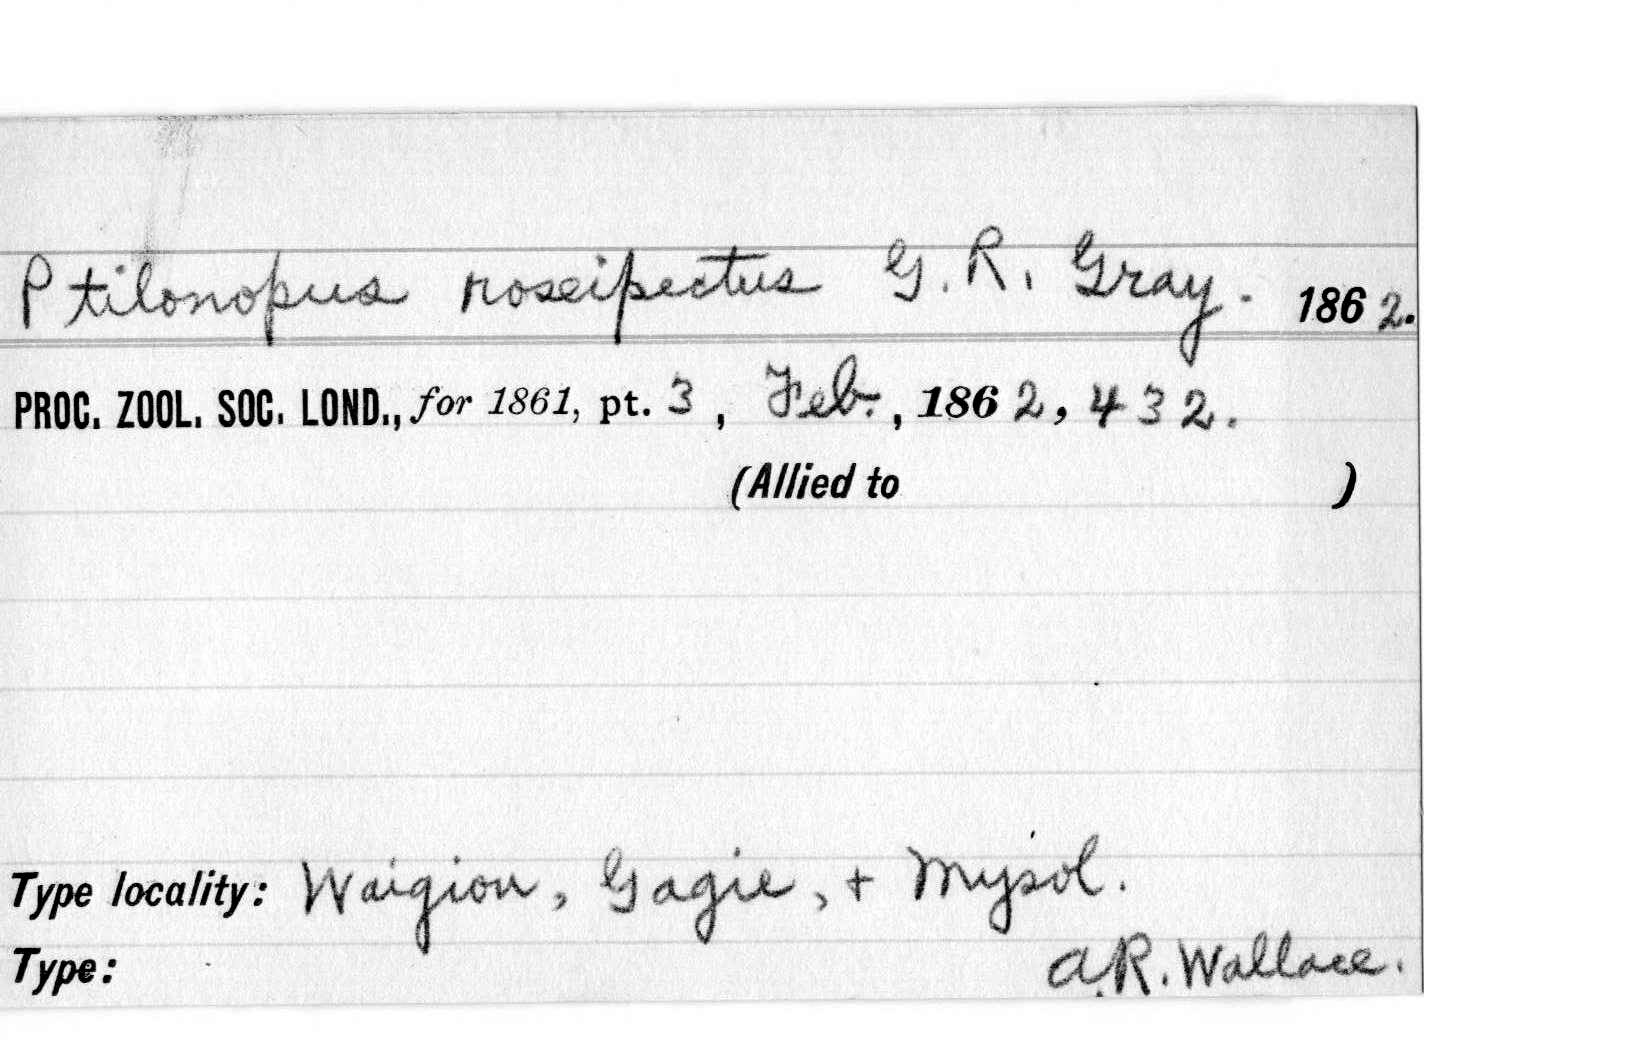 Ptilonopus roseipectus G. R. Gray. 1862.
PROC. ZOOL. SOC. LOND., for 1861, pt. 3, Feb., 1862, 432.
(Allied to )
Type locality: Waigiou, Gagie, + Mysol.
Type: A.R. Wallace.